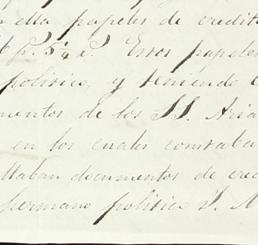 ella papeles de credito
p. 5¼ c. Estos papeles
politico, y teniendo
mentos de los SS. Aria
en los cuales constaba
llaban documentos de cred
hermano politico S. M